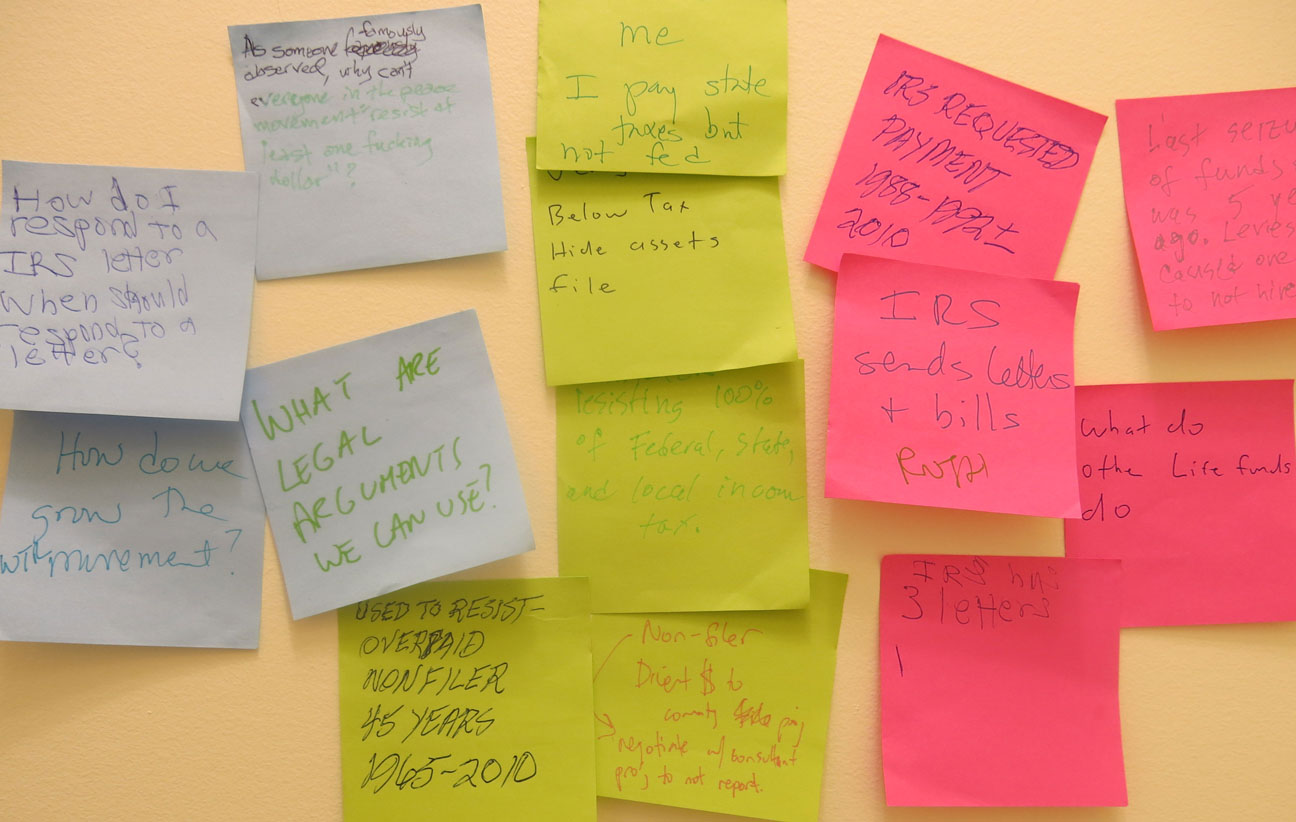 As someone famously
observed, why can't
everyone in the peace
movement "resist at
least one fucking
dollar"?
How do I
respond to a
IRS letter
When should
respond to a
letter?
How do we
grow the
WTR movement?
WHAT ARE
LEGAL
ARGUMENTS
WE CAN USE?
me
I pay state
taxes but
not fed
Below Tax
Hide assets
file
resisting 100%
of Federal, State,
and local incom
tax.
USED TO RESIST-
OVERPAID
NONFILER
45 YEARS
1965-2010
Non-filer
Direct $ to
negotiate w/ consultant
to not report.
IRS REQUESTED
PAYMENT
1988-1992±
2010
IRS
sends letters
+ bills
Last seizu
of funds
was 5 ye
ago. Levies
caused one
to not hire
What do
othe Life funds
do
IRS has
3 letters
1